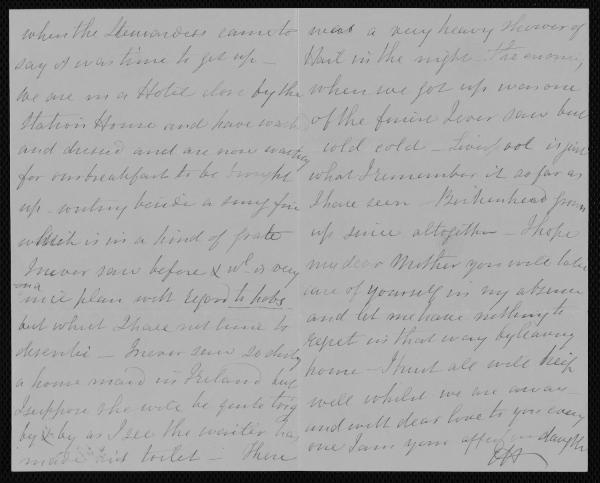 when the Stewardess came to
say it was time to get up —
we are in a Hotel close by the
Station House and have washed
and dressed and are now waiting
for our breakfast to be brought
up — writing beside a snug fire
which is in a kind of grate
I never saw before & wh. is very
on a
nice plan with regard to hobs
but which I have not time to
describe — I never saw so dirty
a house maid in Ireland but
I suppose she will be quite tidy
by & by as I see the waiter has
made his toilet — There
was a very heavy shower of
Hail in the night. The morning
when we got up was one
of the finest I ever saw but
cold cold — Liverpool is just
what I remember it as far as
I have seen — Birkenhead grown
up since altogether — I hope
my dear Mother you will take
care of yourself in my absence
and let me have nothing to
regret in that way by leaving
home — I trust all will keep
well whilst we are away —
and with dear love to you every
one I am your affec daughter